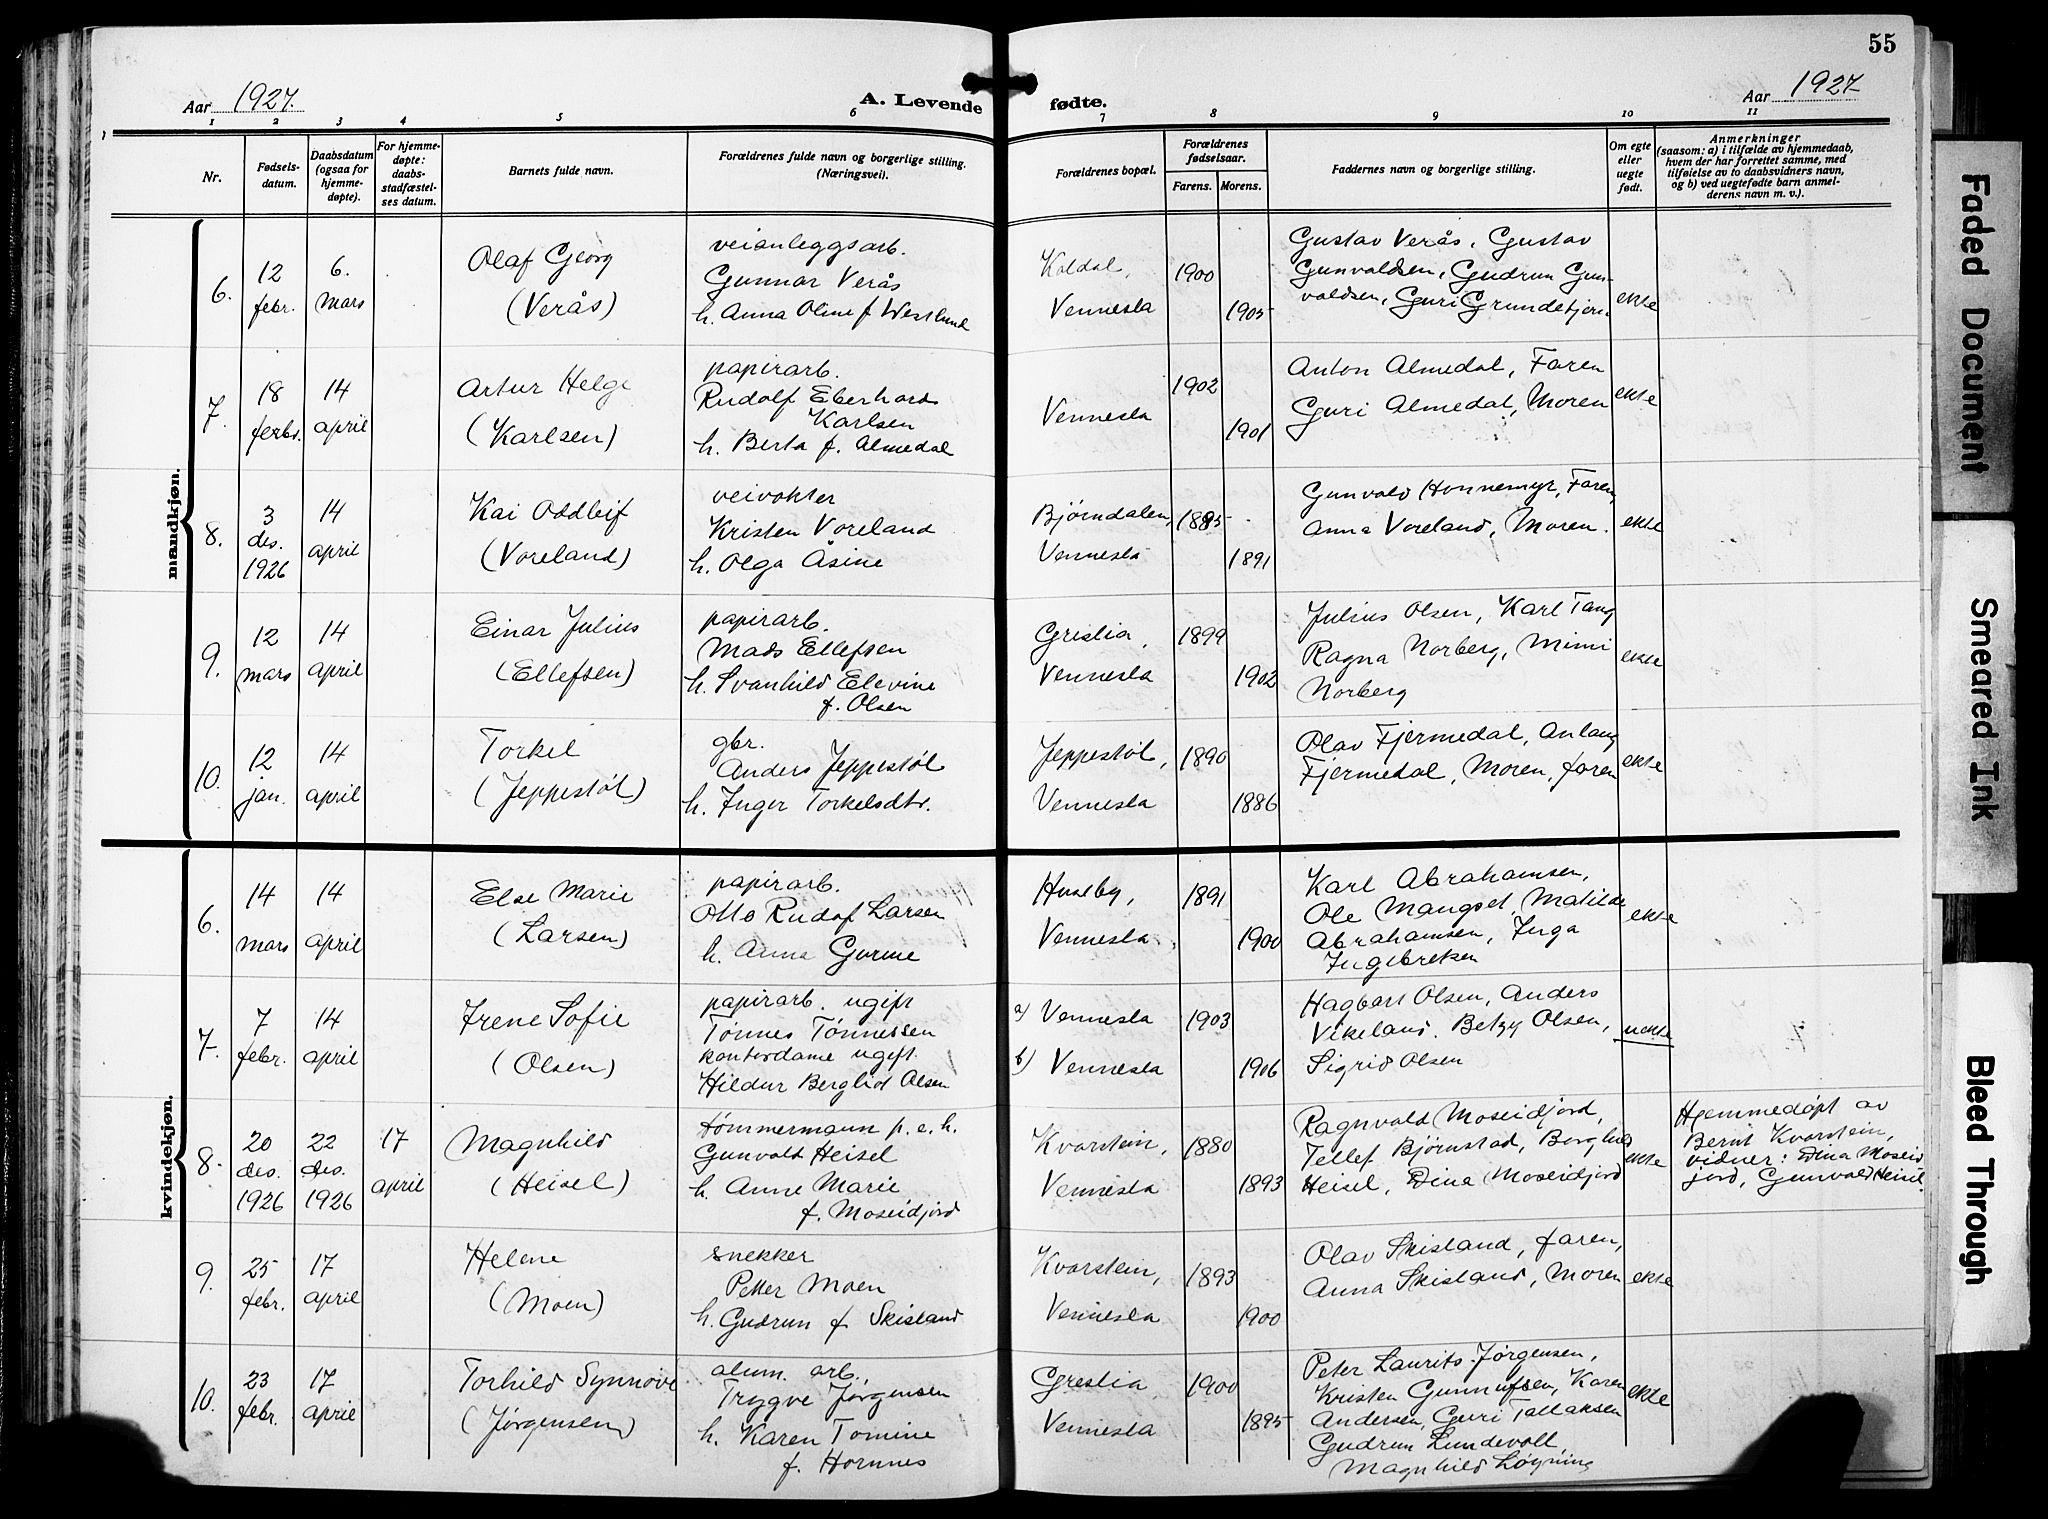 55
Aar 1927.
A. Levende fødte.
Aar 1927
1 2 3 4 5 6 7 8 9 10 11
Nr.
Fødsels-
datum.
Daabsdatum
(ogsaa for
hjemme-
døpte).
For hjemme-
døpte:
daabs-
stadfæstel-
ses datum.
Barnets fulde navn.
Forældrenes fulde navn og borgerlige stilling.
(Næringsvei).
Forældrenes bopæl.
Forældrenes
fødselsaar.
Farens. Morens.
Faddernes navn og borgerlige stilling.
Om egte
eller
uegte
født.
Anmerkninger
(saasom: a) i tilfælde av hjemmedaab,
hvem der har forrettet samme, med
tilføielse av to daabsvidners navn,
og b) ved uegtefødte barn anmel-
derens navn m. v.).
mandkjøn.
6.
12
febr.
6.
mars
Olaf Georg
(Verås)
veianleggsarb.
Gunnar Verås
h. Anna Oline f Westlund
Koldal,
Vennesla
1900
1905
Gustav Verås, Gustav
Gunvaldsen, Gudrun Gun-
valdsen, Guri Grundetjern
ekte
7.
18
febr.
14
april
Artur Helge
(Karlsen)
papirarb.
Rudolf Eberhard
Karlsen
h. Berta f. Almedal
Vennesla
1902
1901
Anton Almedal, Faren
Guri Almedal, Moren
ekte
8.
3
des.
1926
14
april
Kai Oddleif
(Voreland)
veivokter
Kristen Voreland
h. Olga Åsine
Bjørndalen,
Vennesla
1885
1891
Gunvald Honnemyr, Faren,
Anna Voreland, Moren.
ekte
9.
12
mars
14
april
Einar Julius
(Ellefsen)
papirarb.
Mads Ellefsen
h. Svanhild Elevine
f. Olsen
Greslia,
Vennesla
1899
1902
Julius Olsen, Karl Tang
Ragna Norberg, Mimi
Norberg
ekte
10.
12
jan.
14
april
Torkel
(Jeppestøl)
gbr.
Anders Jeppestøl
h. Inger Torkelsdtr.
Jeppestøl,
Vennesla
1890
1886
Olav Fjermedal, Anlaug
Fjermedal, Moren, faren
ekte
kvindekjøn.
6.
14
mars
14
april
Else Marie
(Larsen)
papirarb.
Otto Rudolf Larsen
h. Anna Gurine
Huseby,
Vennesla
1891
1900
Karl Abrahamsen,
Ole Mangset, Matilde
Abrahamsen, Inga
Ingebretsen
ekte
7.
7
febr.
14
april
Irene Sofie
(Olsen)
papirarb. ugift
Tønnes Tønnessen
kontordame ugift.
Hildur Berglid Olsen
a) Vennesla
b) Vennesla
1903
1906
Hagbart Olsen, Anders
Vikeland. Betzy Olsen,
Sigrid Olsen
uekte
8.
20
des.
1926
22
des.
1926
17
april
Magnhild
(Heisel)
tømmermann p. e. h.
Gunvald Heisel
h. Anne Marie
f. Moseidjord
Kvarstein,
Vennesla
1880
1893
Ragnvald Moseidjord,
Tellef Bjørnstad, Borghild
Heisel, Dina Moseidjord
ekte
Hjemmedøpt av
Bernt Kvarstein,
vidner: Dina Moseid
jord, Gunvald Heisel.
9.
25
febr.
17
april
Helene
(Moen)
snekker
Petter Moen
h. Gudrun f Skisland
Kvarstein,
Vennesla
1893
1900
Olav Skisland, faren,
Anna Skisland, Moren
ekte
10.
23
febr.
17
april
Torhild Synnøve
(Jørgensen)
alum. arb.,
Trygve Jørgensen
h. Karen Tomine
f. Hornnes
Greslia
Vennesla
1900
1895
Peter Laurits Jørgensen,
Kristen Gunnufsen, Karen
Andersen, Guri Tallaksen
Gudrun Lundevoll,
Magnhild Løyning
ekte
Faded Document
Smeared Ink
Bleed Through